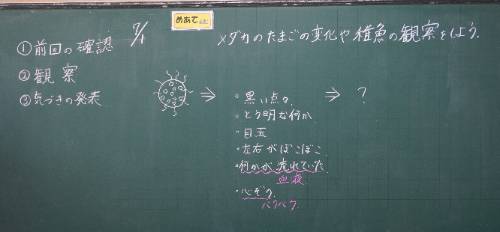 ①前回の確認
②観察
③気づきの発表
7/1
めあて
メダカのたまごの変化や稚魚の観察をしよう。
⇒
・黒い点々
・とう明な何か
・目玉
・左右がぼこぼこ
・何かが流れていた
血液
・心ぞう
バクバク
⇒ ?